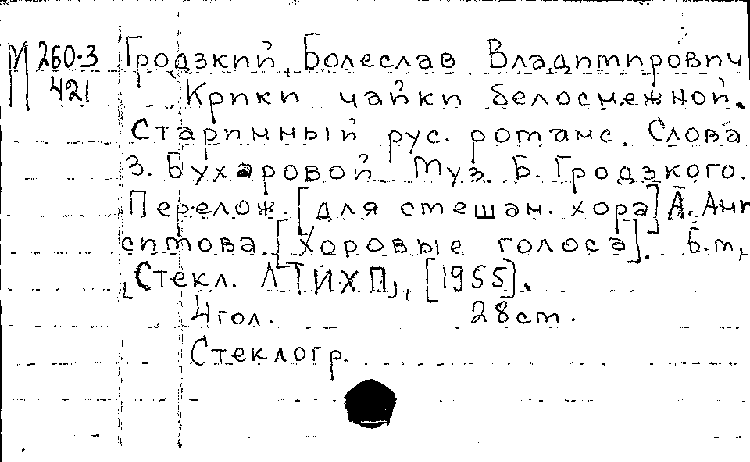 М 260-3 Гродзкий, Болеслав Владимирович
421 Крики чайки белоснежной.
Старинный рус. романс. Слова
З. Бухаровой. Муз. Б. Гродзкого.
Перелож. [для смешан. хора] А. Ани-
симова. [Хоровые голоса]. Б.м.,
"Стекл. ЛТИХП", [1955].
4 гол. 28 см.
Стеклогр.